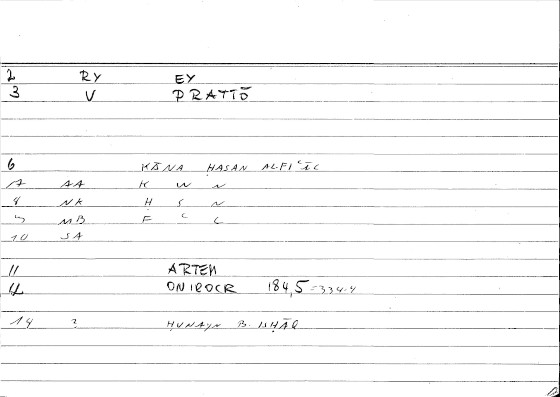 2 RY EY
3 V PRATTŌ
6 KĀNA ḤASAN AL-FIʿĪL
7 AA K W N
8 NK Ḥ S N
9 MB F ʿ L
10 SA
11 ARTEM
12 ONIROCR 184,5 = 334.4
14 3 ḤUNAYN B. ISḤĀQ